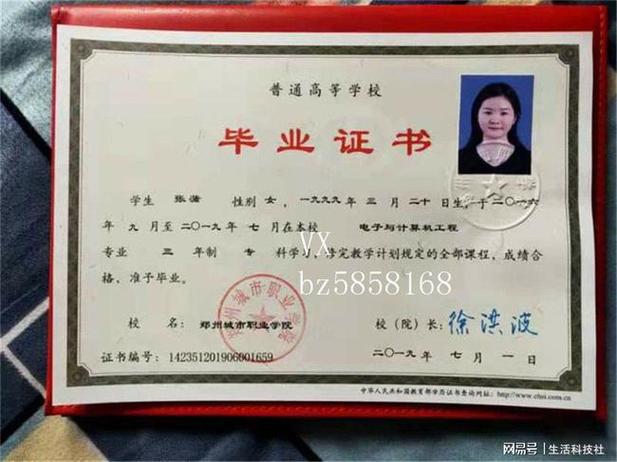 普通高等学校
毕业证书
学生 张蒲 性别 女，一九九九年 三 月 二十 日生，于二〇一六
年 九 月至二〇一九年 七 月在本校 电子与计算机工程
专业 三 年制 专 科学习，修完教学计划规定的全部课程，成绩合
格，准予毕业。
VX
bz5858168
郑州城市职业学院
校 名：郑州城市职业学院 校（院）长：徐洪波
证书编号：142351201906001659 二〇一九年 七月 一日
中华人民共和国教育部学历证书查询网址：http://www.chsi.com.cn
网易号 | 生活科技社